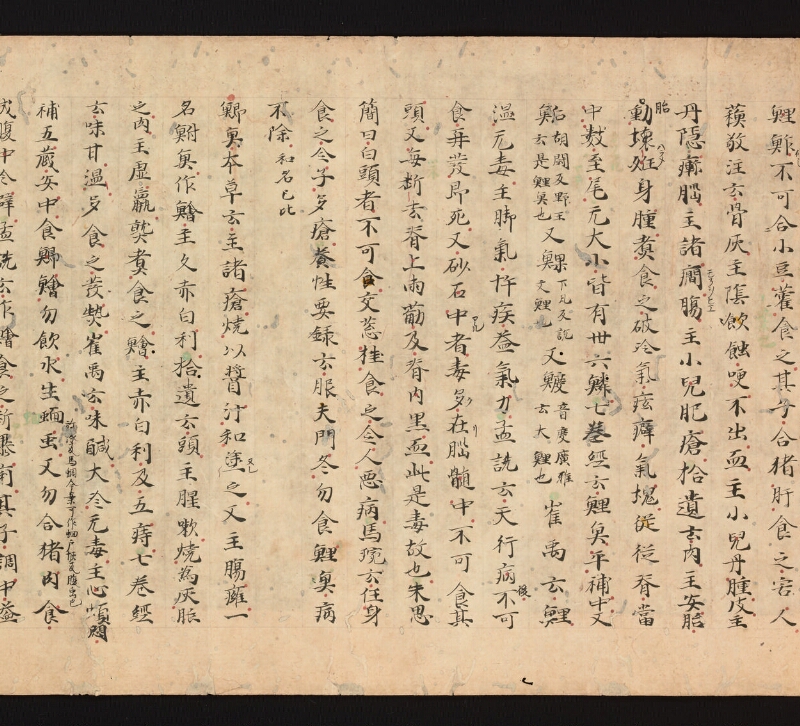 鯉鮓不可合小豆藿食之其子合猪肝食之害人
蘓敬注云骨灰主陰飲蝕哽不出血主小兒丹腫皮主
丹隱瘮腦主諸癇腸主小兒肥瘡拾遺云肉主安胎
胎動壊妊身腫煑食之破冷氣痃癖氣塊從脊當
中数至尾无大小皆有卅六鱗七巻經云鯉魚平補中又
魚云是鯉魚也又鯶又鯉也又鰀音变廣雅云大鯉也崔禹云鯉
温无毒主脚氣忤疾益氣力孟詵云天行病後不可
食再發即死又砂石中者毒多在腦髓中不可食其
頭又毎断去脊上兩筋及脊内黒血此是毒故也朱思
簡曰白頭者不可食又葱桂食之令人惡病馬琬云任身
食之令子多瘡養性要録云服天門冬勿食鯉魚病
不除和名己比
鯽魚本草云主諸瘡燒以醬汁和塗之又主腸癰一
名鮒魚作鱠主久赤白利拾遺云頭主腥嗽燒為灰胎
之肉主虚羸熟煑食之鱠主赤白利及五痔七巻經
云味甘温多食之發熱崔禹云味鹹大冷无毒主心煩悶
補五藏安中食鯽鱠勿飲水生蛔虫又勿合猪肉食
成腹中冷孟詵云作鱠食之断暴痢其子調中益